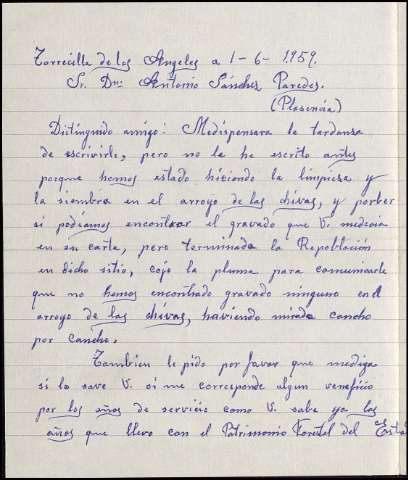 Torrecilla de los Angeles a 1-6-1.959.
Sr. Dn: Antonio Sánchez Paredes.
(Plasencia)
Distinguido amigo: Medispensara la tardansa
de escrivirle, pero no le he escrito antes
porque hemos estado hiciendo la limpiesa y
la siembra en el arroyo de las chivas, y porber
si podiamos encontrar el gravado que V. medecia
en su carta, pere terminada la Repoblación
en dicho sitio, cojo la pluma para comunicarle
que no hemos encontrado gravado ninguno en el
arroyo de las chivas, haviendo mirado cancho
por cancho.
Tambien le pido por favor que mediga
si lo save V. si me corresponde algun veneficio
por los años de servicio como V. sabe ya los
años que llevo con el Patrimonio Forestal del Esta